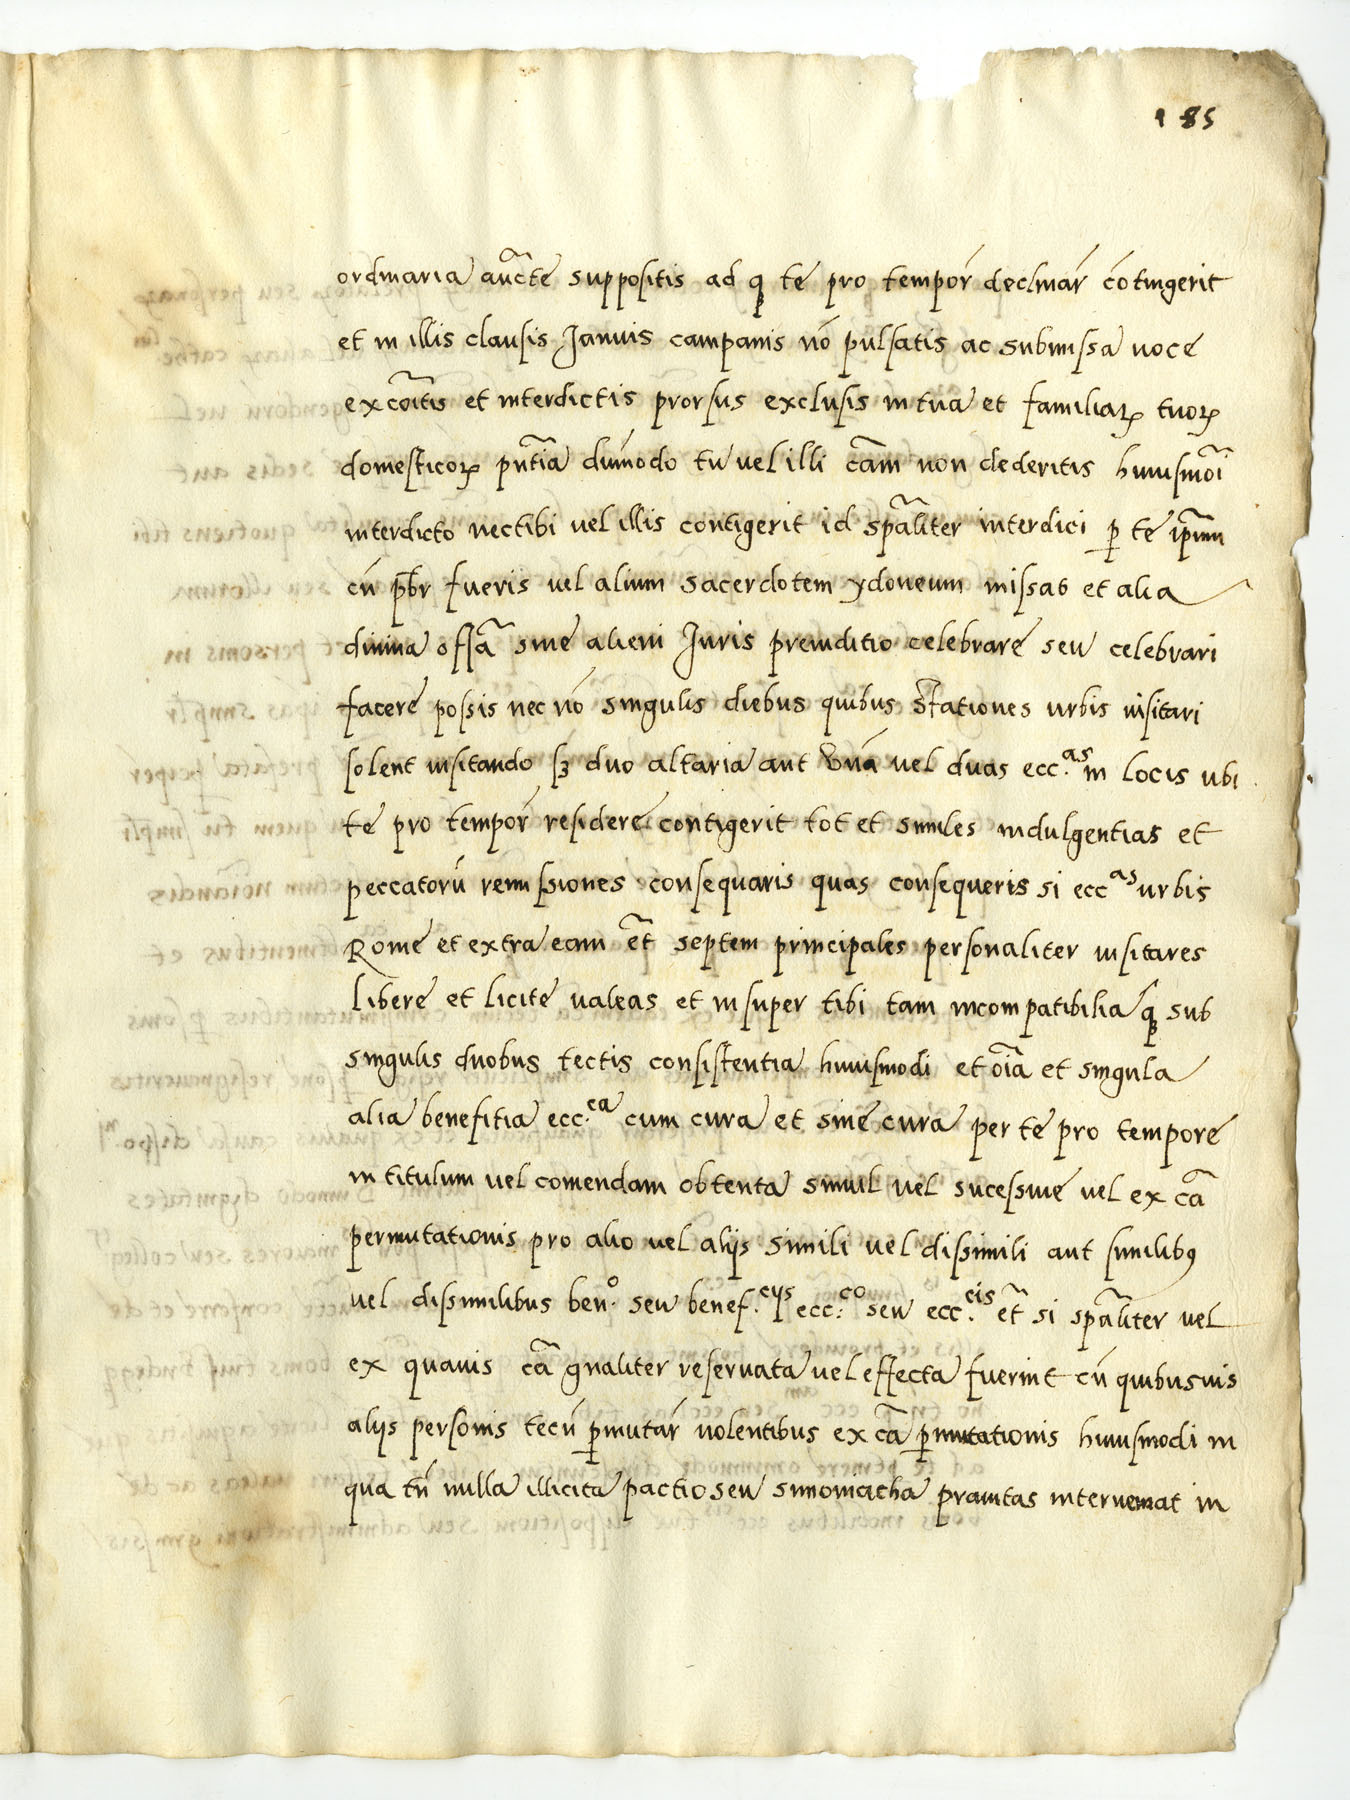 185
ordinaria auc̃te suppositis ad q̃ te pro tempor̃ declinar̃ cõtingerit
et in illis clausis Januis campanis nõ pulsatis ac submissa uoce
excõitis et interdictis prorsus exclusis in tua et familiaꝝ tuoꝝ
domesticoꝝ pñtia dũmodo tu vel illi cãm non dederitis huiusmõi
interdicto nec tibi vel illis contigerit id spãliter interdici ꝑ te ip̃um
cũ pb̃r fueris vel alium sacerdotem ydoneum missas et alia
diuina offã sine alieni Juris preiuditio celebrare seu celebrari
facere possis nec nõ singulis diebus quibus Stationes urbis uisitari
solent uisitando sꝫ duo altaria aut Vnã vel duas ecc.as in locis ubi
te pro tempor̃ residere contigerit tot et similes indulgentias et
peccatorũ remissiones consequaris quas consequeris si ecc as urbis
Rome et extra eam et̃ septem principales personaliter uisitares
libere et licite ualeas et insuper tibi tam incompatibilia q̃ sub
singulis duobus tectis consistentia huiusmodi et oĩa et singula
alia benefitia ecc.ca cum cura et sine cura per te pro tempore
in titulum vel comendam obtenta simul vel sucessiue vel ex cã
permutationis pro alio vel alijs simili vel dissimili aut similibꝰ
vel dissimilibus ben.o seu benef.cijs ecc.co seu ecc.cis et̃ si spãliter vel
ex quauis cã gñaliter reseruata vel effecta fuerint cũ quibusuis
alijs personis tecũ ꝑmutar̃ uolentibus ex cã ꝑmutationis huiusmodi in
qua tñ nulla illicita pactio seu simoniacha prauitas interueniat in